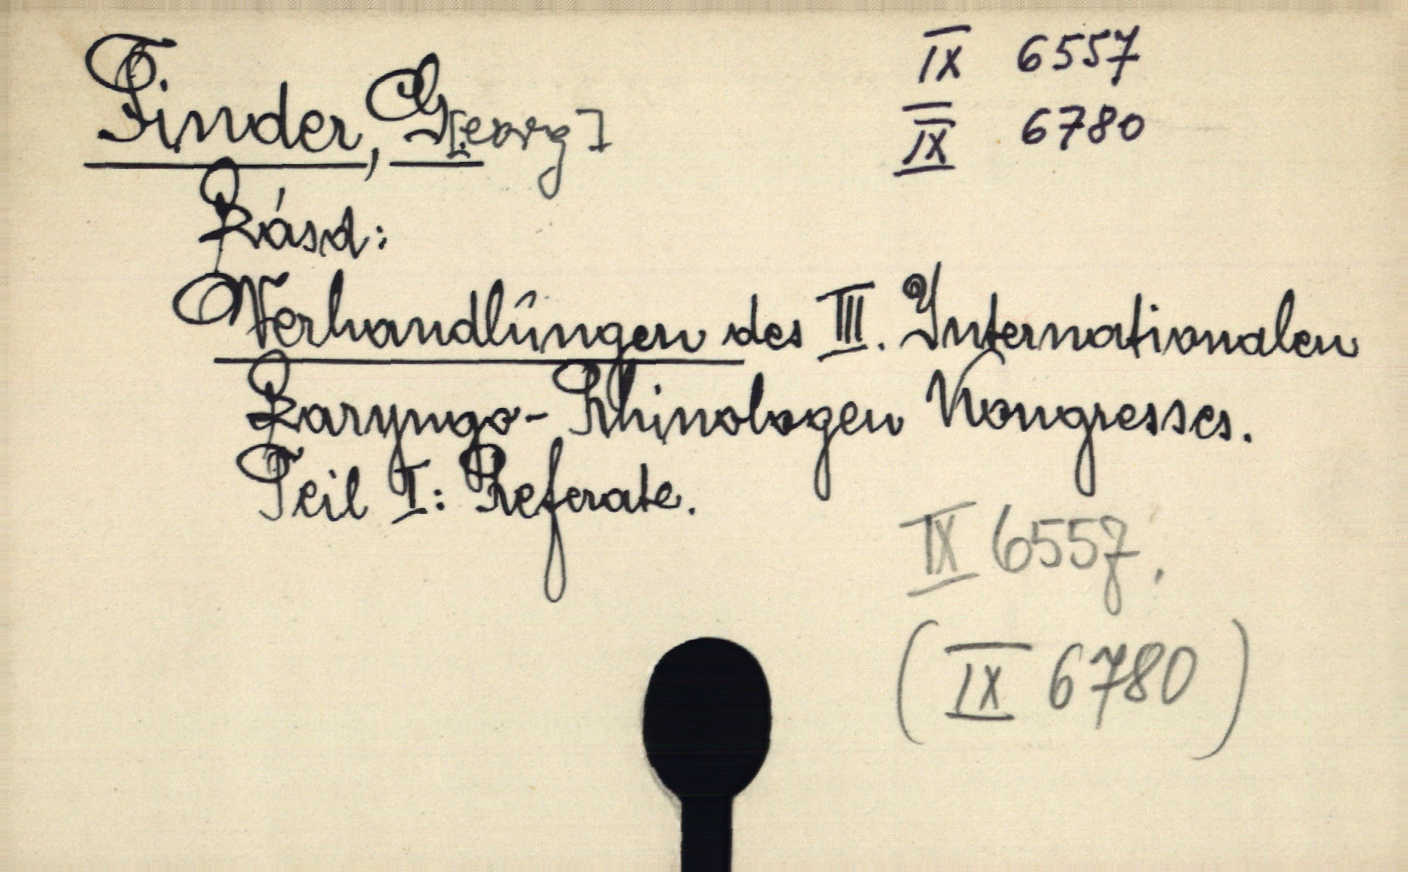 Finder, G[eorg]
IX 6557
IX 6780
Lásd:
Verhandlûngen des III. Internationalen
Laryngo-Rhinologen Kongresses.
Teil I: Referate.
IX 6557.
(IX 6780)